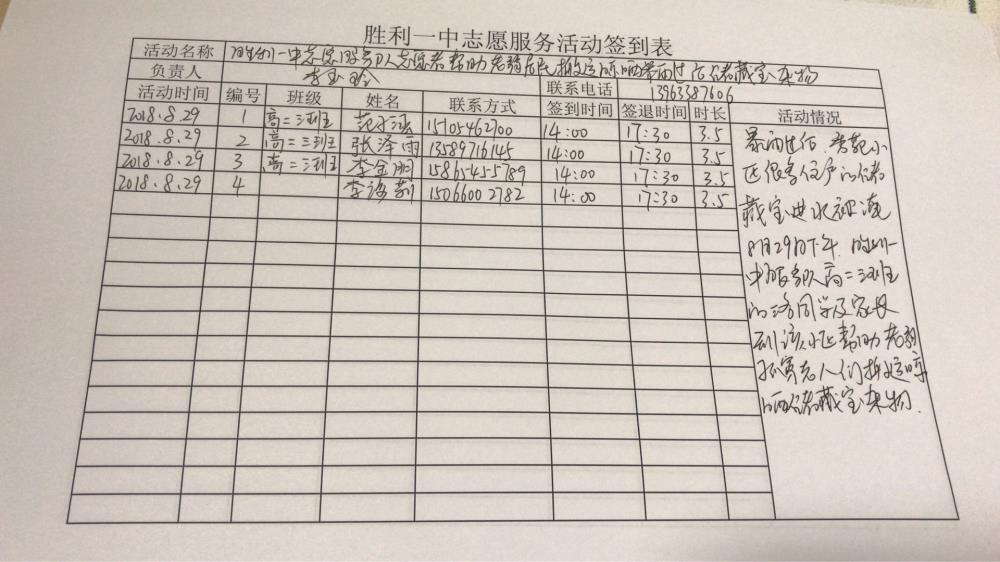 胜利一中志愿服务活动签到表
活动名称 胜利一中志愿服务队志愿者帮助老弱居民搬运 暴雨过后储藏室杂物
负责人 李玉玲 联系电话 13963387606
活动时间 编号 班级 姓名 联系方式 签到时间 签退时间 时长 活动情况
2018.8.29 1 高二三班 15105462700 14:00 17:30 3.5
2018.8.29 2 高二三班 张泽雨 13589716145 14:00 17:30 3.5
2018.8.29 3 高二三班 李金玥 15865455789 14:00 17:30 3.5
2018.8.29 4 李海莉 15066002782 14:00 17:30 3.5
暴雨过后 小
区很多住户的储
藏室进水被淹
8月29日下午,胜利一
中服务队高二三班
的 同学及家长
到该小区帮助老弱
孤寡老人们搬运晾
晒储藏室杂物.